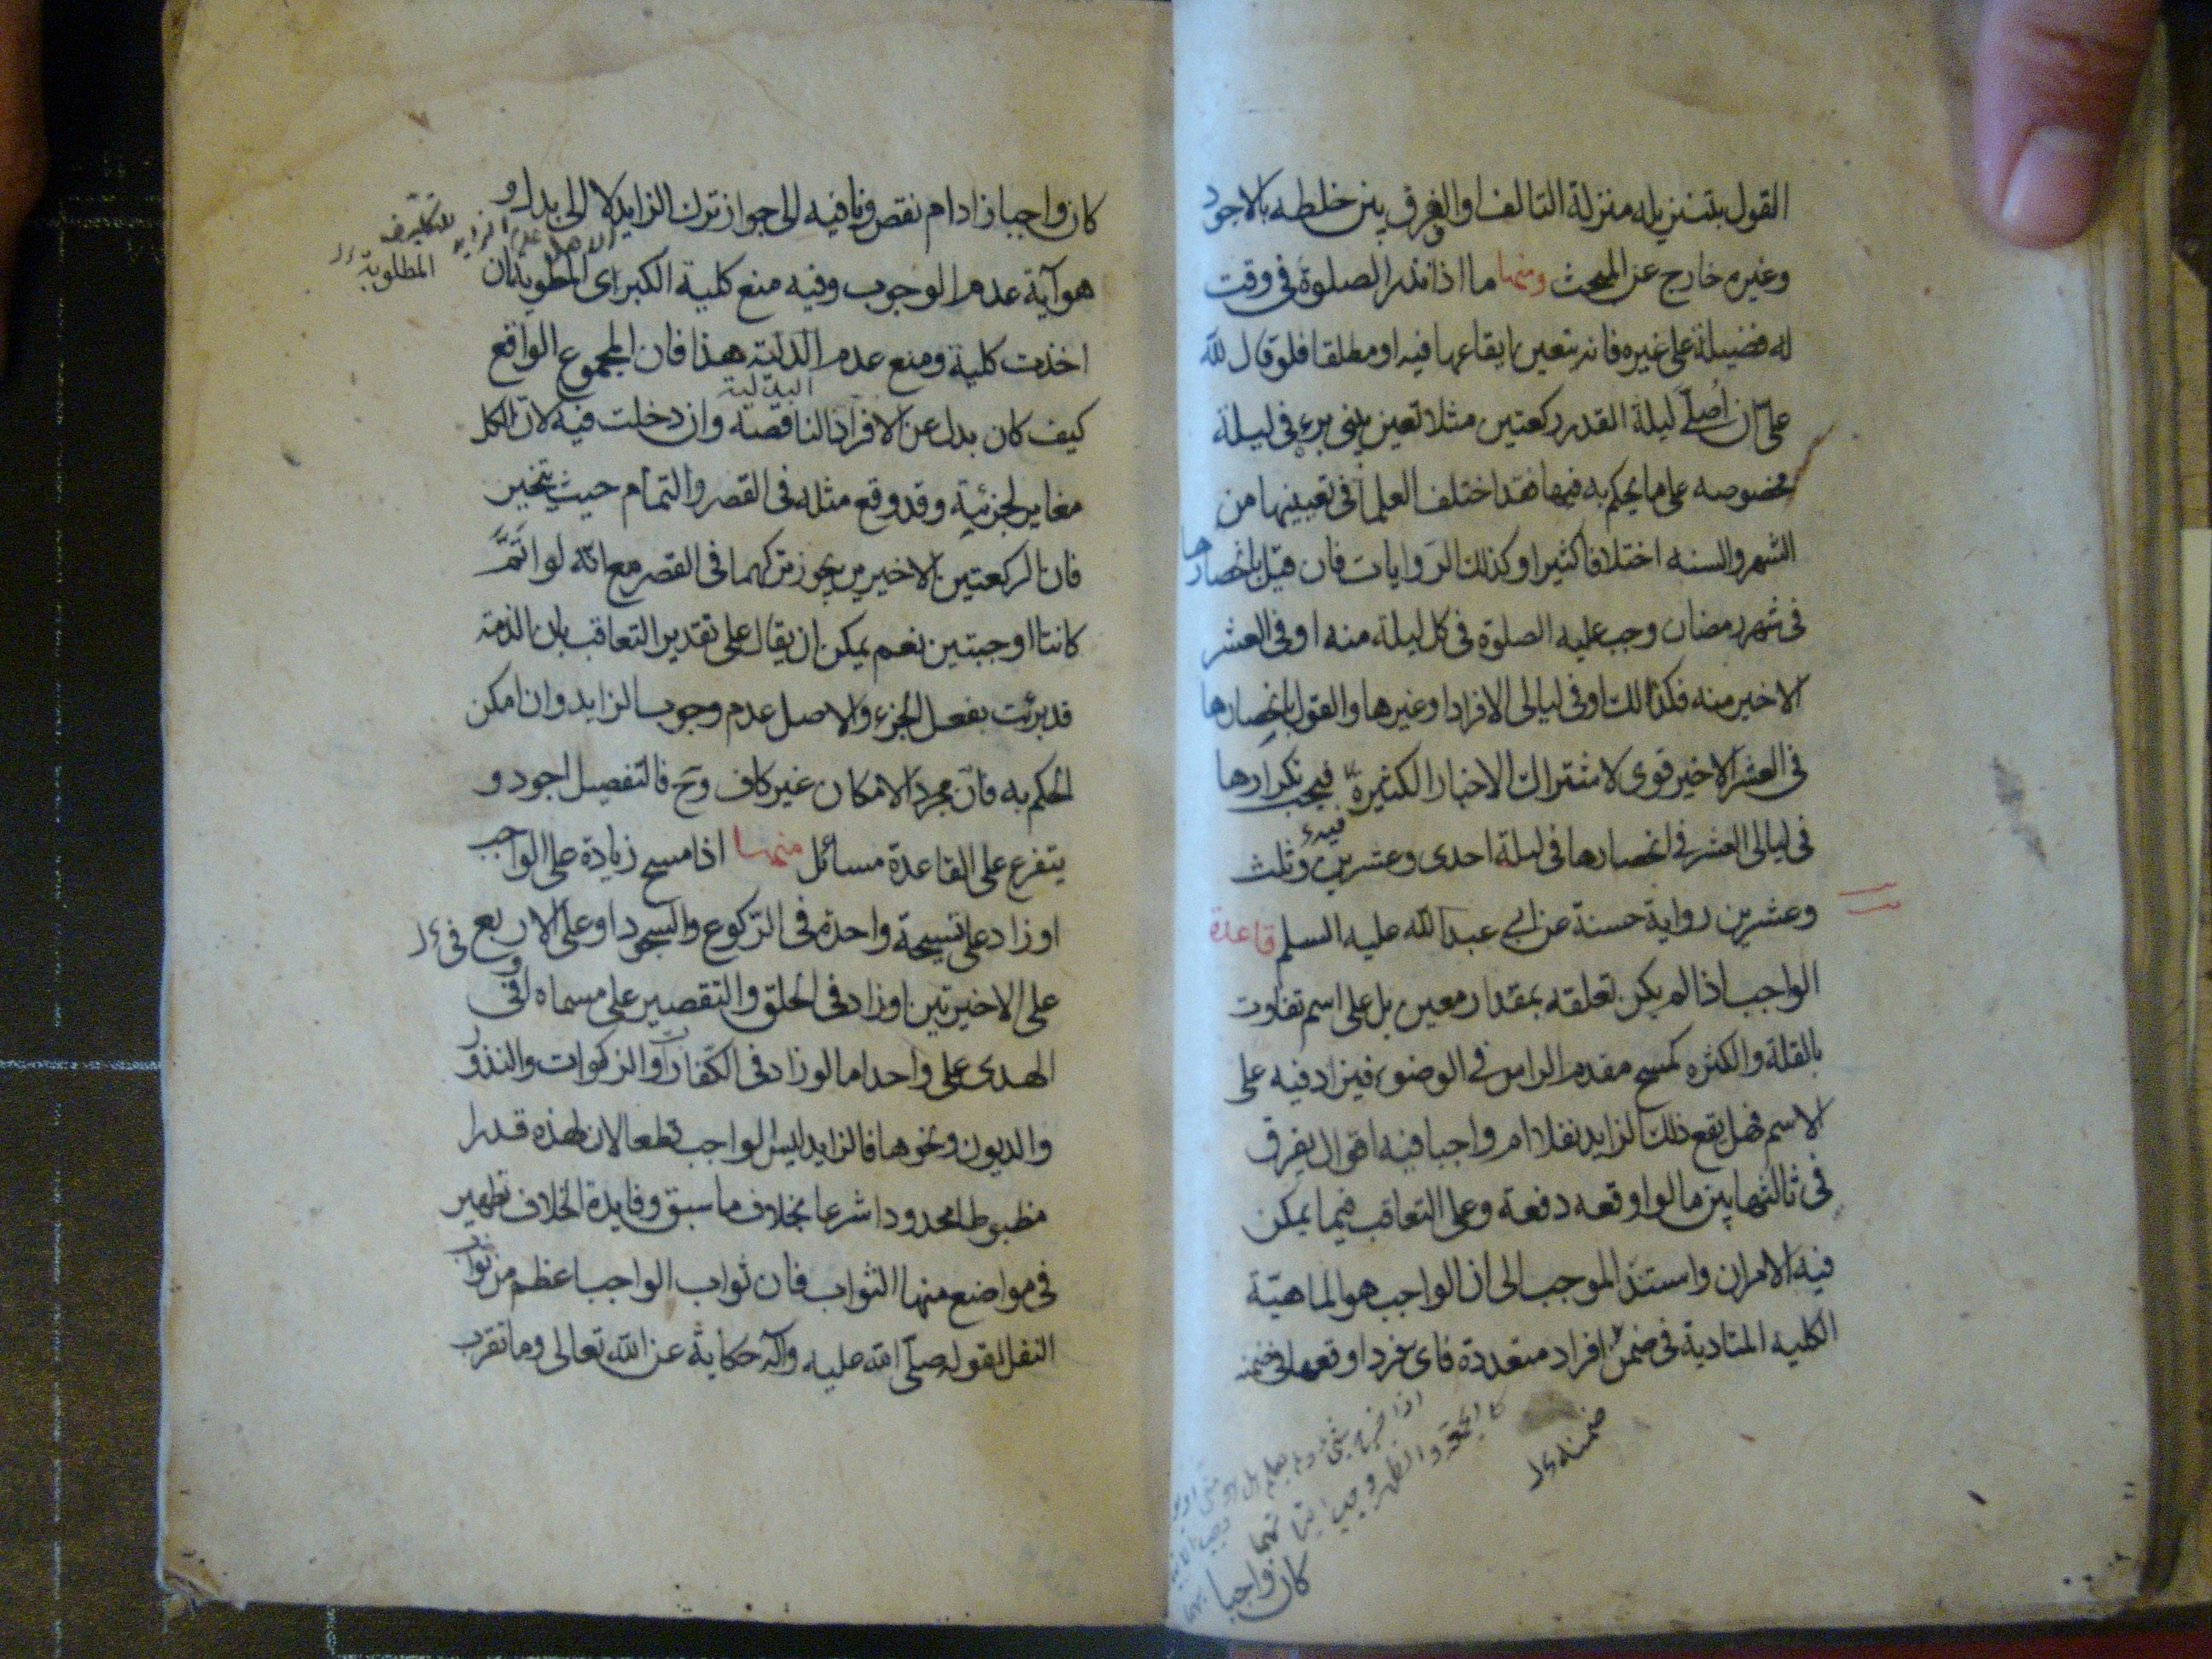 القول بتنزيله منزلة التالف او الفرق بين خلطه بالاجود
وغيره خارج عن المبحث ومنها ما اذا نذر الصلوة فى وقت
له فضيلة على غيره فانه يتعين ايقاعها فيه او مطلقا فلو قال لله
علىّ ان اُصلّى ليلة القدر ركعتين مثلا تعين لمن يرى فى ليلة
مخصوصه على ما يحكم به فيها فقد اختلف العلما فى تعيينها من
الشهر والسنه اختلافا كثيرا وكذلك الروايات فان قيل بانحصارها
فى شهر رمضان وجب عليه الصلوة فى كل ليلة منه او فى العشر
الاخير منه فكذلك او فى ليالى الافراد او غيرها والقول بانحصارها
فى العشر الاخير قوى لاشتراك الاخبار الكثيرة فيه فيجب تكرارها
فى ليالى العشر فى انحصارها فى ليلة احدى وعشرين وثلث
وعشرين رواية حسنة عن ابى عبد الله عليه السلم قاعدة
الواجب اذا لم يكن تعلقه بمقدار معين بل على اسم تفاوت
بالقلة والكثره كمسح مقدم الراس فى الوضوء فيزاد فيه على
الاسم فهل يقع ذلك الزايد نفلا ام واجبا فيه اقوال يفرق
فى ثالثها بين ما لو اوقعه دفعة وعلى التعاقب فيما يمكن
فيه الامران واستند الموجب الى ان الواجب هو الماهيّة
الكلية المتادية فى ضمن افراد متعددة فاى فرد اوقعها فى ضمنه
ضمنه
كان واجبا
كان واجبا زاد ام نقص ونافيه الى جواز ترك الزايد لا الى بدل و
هو آية عدم الوجوب وفيه منع كلية الكبرى المطوية ان
المطلوبة
اخذت كلية ومنع عدم البدلية هذا فان المجموع الواقع
البدلية
كيف كان بدل عن الافراد الناقصة وان دخلت فيه لان الكل
مغاير لجزئية وقد وقع مثله فى القصر والتمام حيث يتخير
فان الركعتين الاخيرين يجوز تركهما فى القصر مع انّه لو اتمّ
كانتا اوجبتين نعم يمكن ان يقال على تقدير التعاقب بان الذمة
قد برئت بفعل الجزء والاصل عدم وجوب الزايد وان امكن
الحكم به فان مجرد الامكان غير كاف وح فالتفصيل اجود و
يتفرع على القاعدة مسائل منها اذا مسح زيادة على الواجب
او زاد على تسبيحة واحدة فى الركوع والسجود او على الاربع فى
على الاخيرتين او زاد فى الحلق والتقصير على مسماه او فى
الهدى على واحد اما لو زاد فى الكفارات او الزكوات والنذور
والديون ونحوها فالزايد ليس لواجب قطعا لان لهذه قدرا
مظبوطا محدودا شرعا بخلاف ما سبق وفايدة الخلاف تظهر
فى مواضع منها الثواب فان ثواب الواجب اعظم من ثواب
النفل لقوله صلّى الله عليه وآله حكاية عن الله تعالى وما تقرب